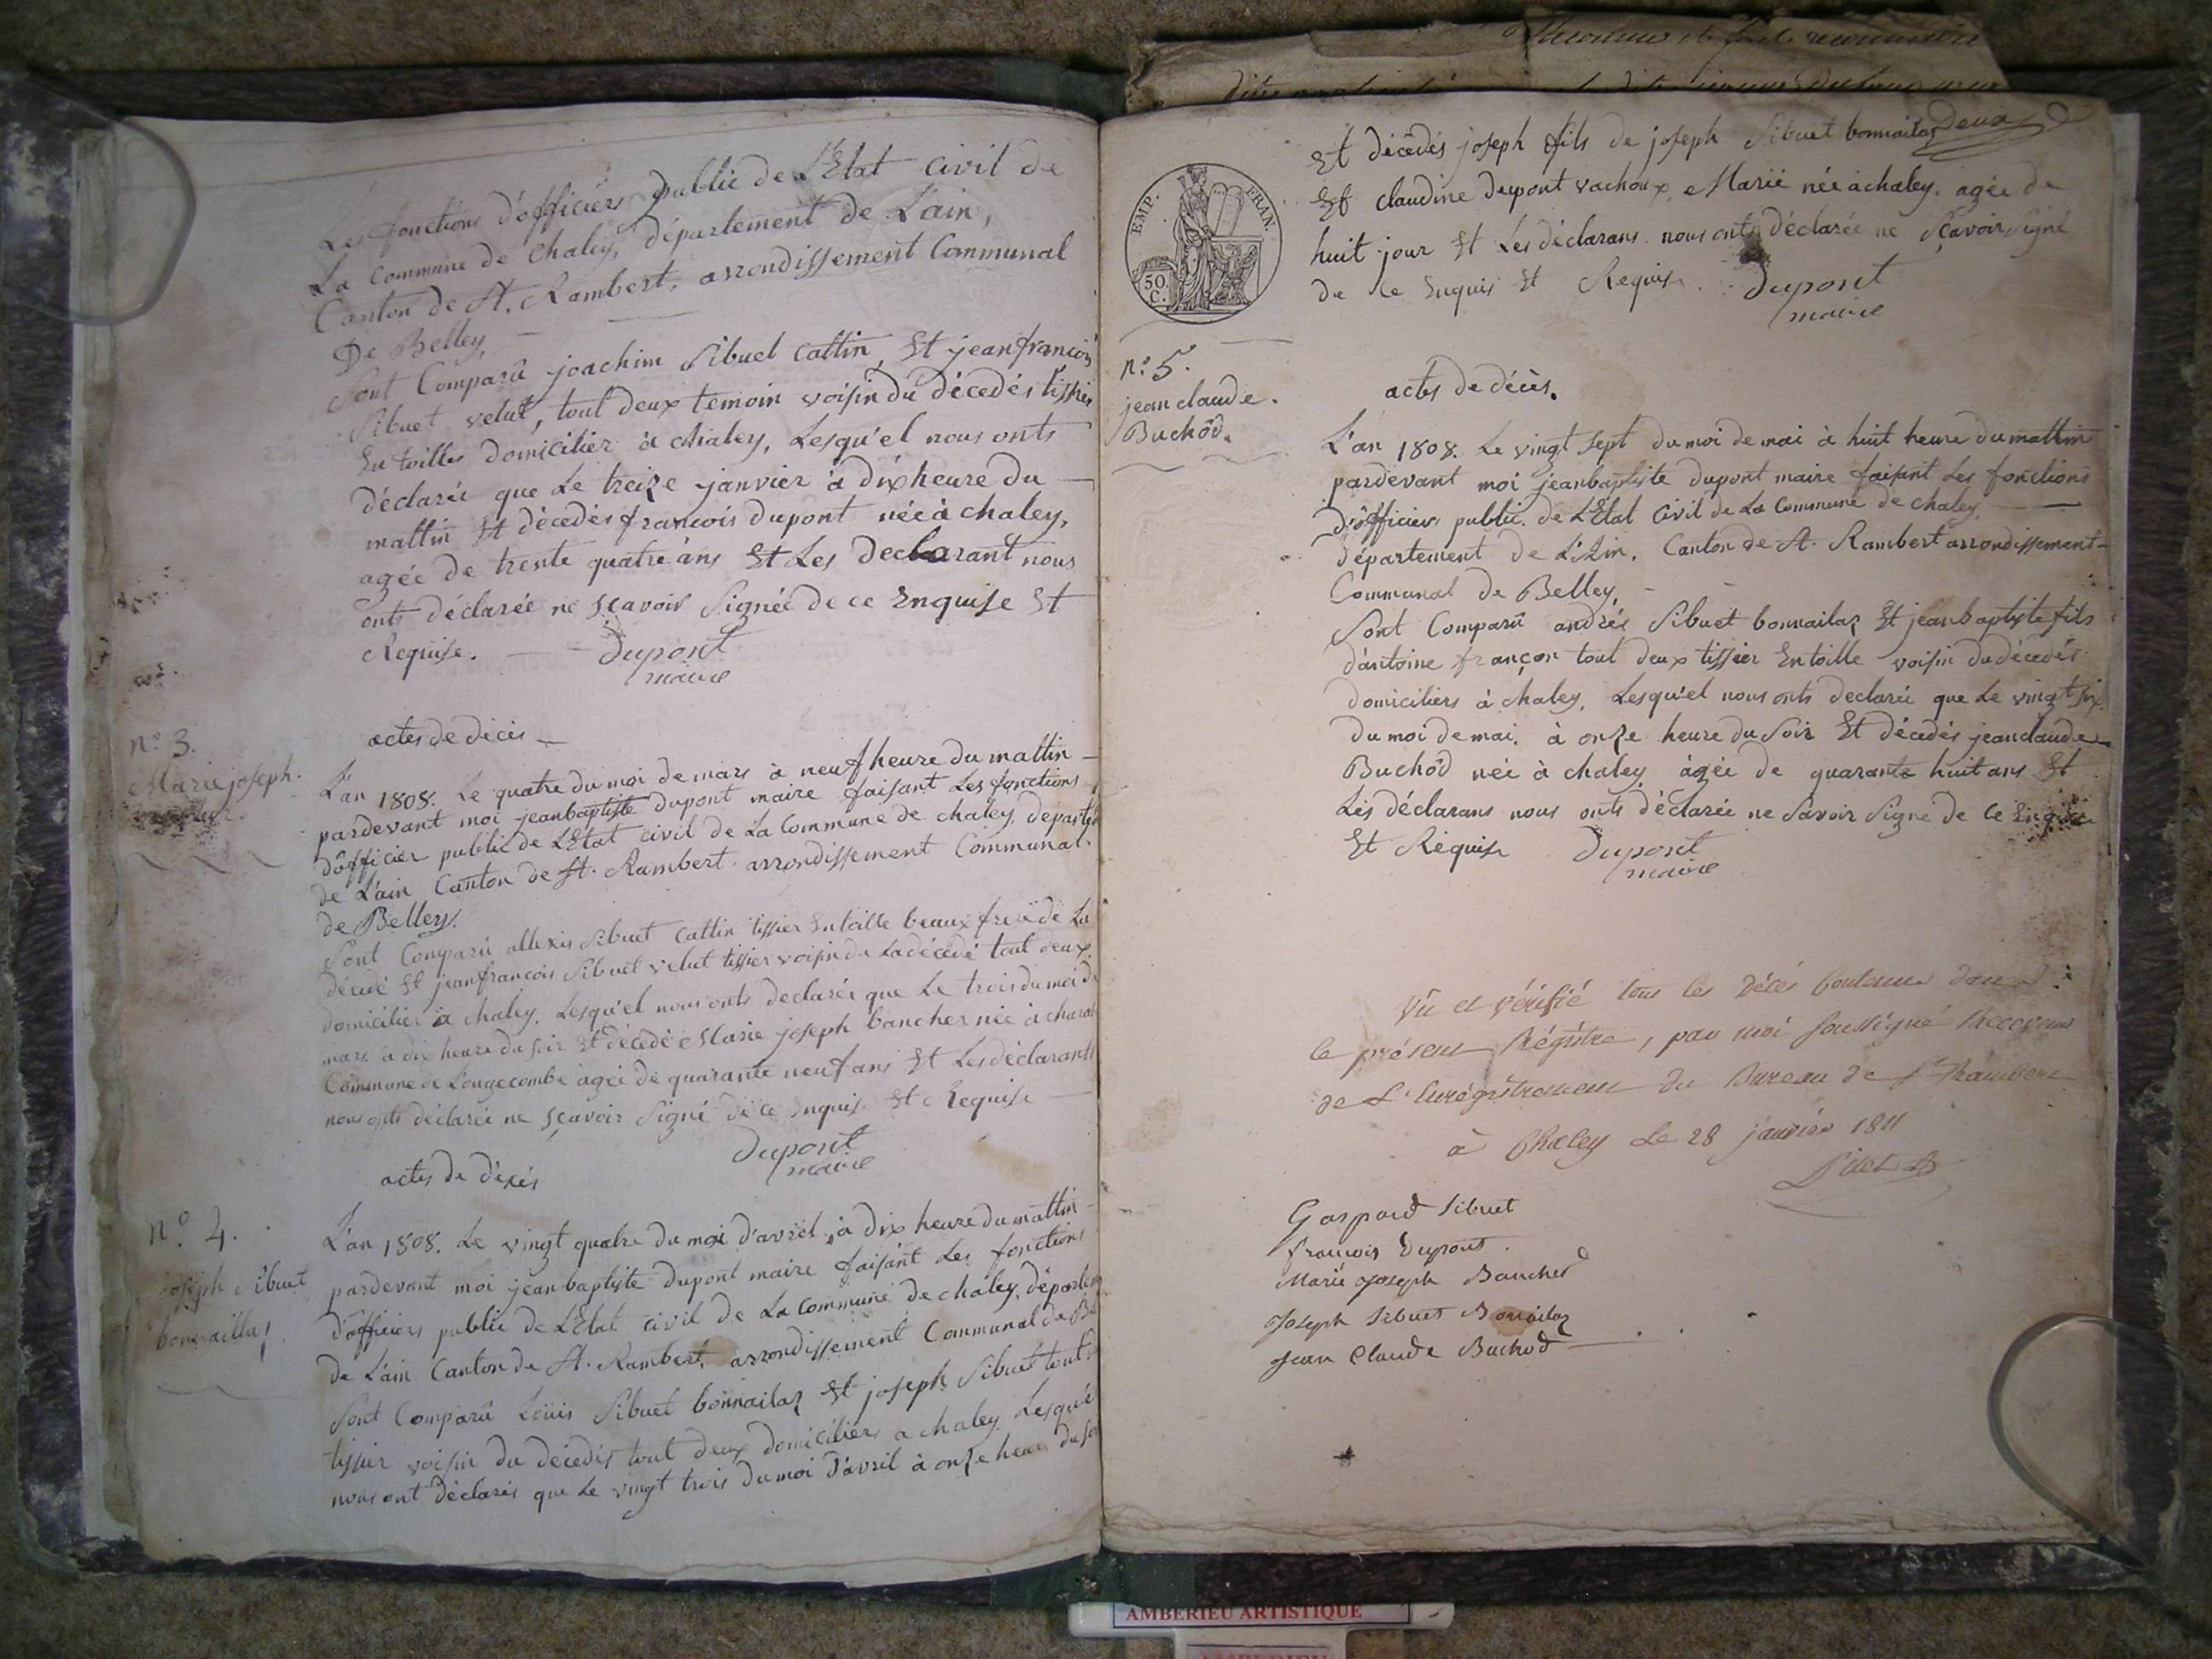 Les fonctions d'officiers public de L'Etat Civil de
La Commune de chaley, département de L'ain,
Canton de St. Rambert, arrondissement Communal
De Belley,
Sont Comparû joachim Sibuet Cattin, Et jeanfrançois
Sibuet velut, tout deux temoin voisin du décedés tissier
En toilles domicilier à chaley, Lesqu'el nous onts
déclaréé que Le treize janvier à dix heure du
mattin Et décedés francois dupont néé à chaley,
agéé de trente quatre ans Et Les declarant nous
onts déclaréé ne sçavoir Signéé de ce Enquise Et
Requise. Dupont
maire
actes de décès
n.° 3.
Marie joseph.
L'an 1808. Le quatre du moi de mars à neuf heure du mattin
pardevant moi jeanbaptiste dupont maire faisant Les fonctions
d'officier public de L'Etat civil de La Commune de chaley, departe
de L'ain Canton de St. Rambert arrondissement Communal.
de Belley.
Sont Comparû allexis Sibuet Cattin tissier En toille beaux frere de La
décédé Et jeanfrancois Sibuet velut tissier voisin de La décédé tout deux
domicilier à chaley. Lesqu'el nous onts declaréé que Le trois du moi de
mars à dix heure du soir Et décedé Marie joseph bancher néé à
Commune de Longecombe agéé de quarante neuf ans Et Les déclarants
nous onts déclaréé ne sçavoir Signé de ce Enquise Et Requise
Dupont
maire
actes de déxés
n.° 4.
joseph Sibuet
bonnaillaz
L'an 1808. Le vingt quatre du moi d'avril, à dix heure du mattin
pardevant moi jeanbaptiste dupont maire faisant Les fonctions
d'officiers public de L'Etat civil de La Commune de chaley, départem
de L'ain Canton de St. Rambert, arrondissement Communal de Be
Sont Comparû Louis Sibuet bonnailaz Et joseph Sibuet tout
tissier voisin du décedés tout deux domiciliers a chaley Lesqu'é
nous ont déclarés que Le vingt trois du moi d'avril à onze heure du soi
deux
Et décédés joseph fils de joseph Sibuet bonnailaz
Et claudine dupont vachoux, Marié néé à chaley. agéé de
huit jour Et Les déclarans nous onts déclaréé ne Sçavoir Signé
de ce Enquis Et Requise. Dupont
maire
EMP. FRAN.
50 C.
n.° 5.
jean claude.
Buchôd.
actes de décès.
L'an 1808. Le vingt sept du moi de mai à huit heure du mattin
pardevant moi jeanbaptiste dupont maire faisant Les fonctions
d'officiers public. de L'Etat Civil de La Commune de chaley,
département de L'Ain. Canton de St. Rambert arrondissement
Communal de Belley,
Sont Comparû andrés Sibuet bonnailaz Et jeanbaptiste fils
d'antoine françon tout deux tissier En toille voisin du décedés
domiciliers à chaley, Lesqu'el nous onts declaréé que Le vingt six
du moi de mai. à onze heure du Soir Et décedés jean claude
Buchôd néé à chaley, âgéé de quarante huit ans Et
Les déclarans nous onts déclaréé ne Savoir Signe de ce Enquise
Et Requise Dupont
maire
Vû et vérifié tous les Décés Contenus dans
le présent Régître, par moi Soussigné Receveur
de L'Enregîtrement du Bureau de St Rambert
à Chaley Le 28 janvier 1811
Gaspard Sibuet
francois Dupont.
Marie Joseph Bancher
Joseph Sibuet Bonnailaz
Jean Claude Buchod
AMBERIEU ARTISTIQUE
AMBERIEU